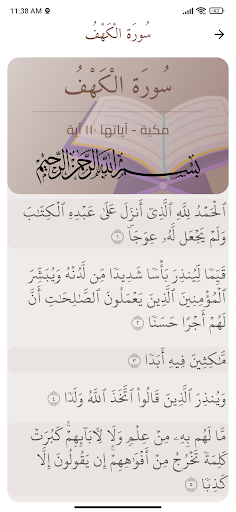 11:38 AM
43
سُورَة الْكَهْفُ
سُورَة الْكَهْفُ
مكية - آياتها ١١٠ آية
بِسْمِ اللَّهِ الرَّحْمَنِ الرَّحِيمِ
ٱلْحَمْدُ لِلَّهِ ٱلَّذِىٓ أَنزَلَ عَلَىٰ عَبْدِهِ ٱلْكِتَـٰبَ
وَلَمْ يَجْعَل لَّهُۥ عِوَجَاۜ ١
قَيِّمًا لِّيُنذِرَ بَأْسًا شَدِيدًا مِّن لَّدُنْهُ وَيُبَشِّرَ
ٱلْمُؤْمِنِينَ ٱلَّذِينَ يَعْمَلُونَ ٱلصَّـٰلِحَـٰتِ أَنَّ
لَهُمْ أَجْرًا حَسَنًا ٢
مَّـٰكِثِينَ فِيهِ أَبَدًا ٣
وَيُنذِرَ ٱلَّذِينَ قَالُوا۟ ٱتَّخَذَ ٱللَّهُ وَلَدًا ٤
مَّا لَهُم بِهِۦ مِنْ عِلْمٍ وَلَا لِـَٔابَآئِهِمْ ۚ كَبُرَتْ
كَلِمَةً تَخْرُجُ مِنْ أَفْوَٰهِهِمْ ۚ إِن يَقُولُونَ إِلَّا
كَذِبًا ٥